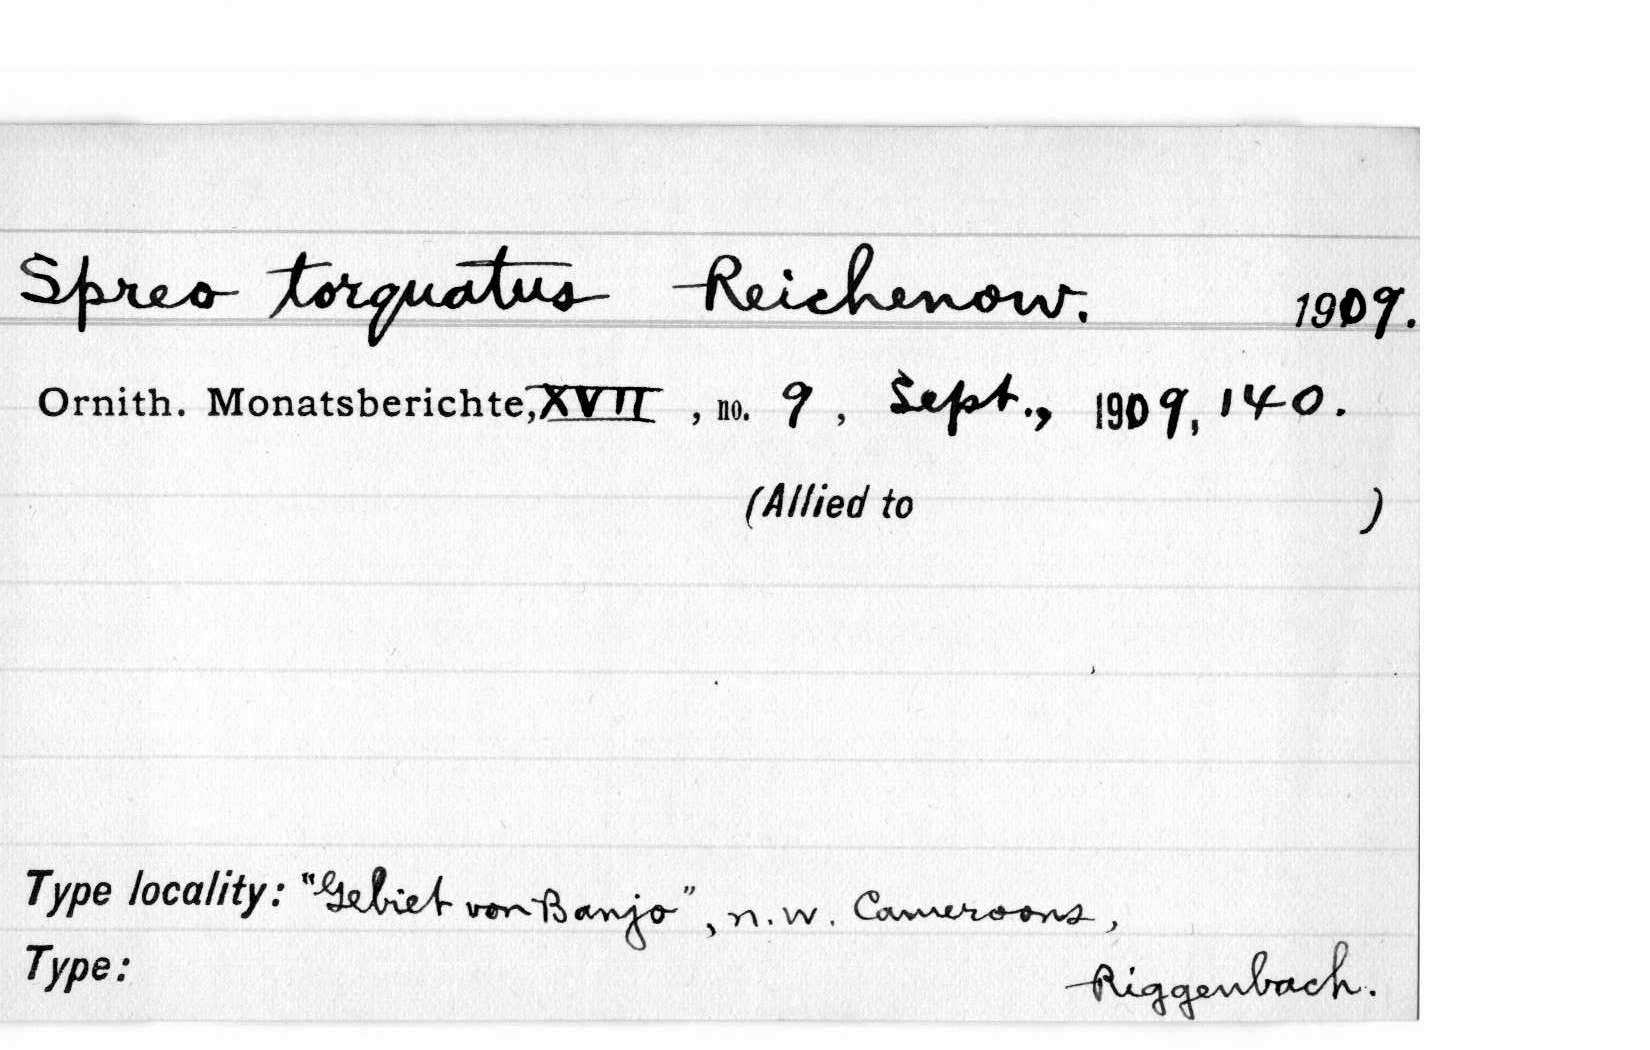 Spreo torquatus Reichenow. 1909.
Ornith. Monatsberichte, XVII, no. 9, Sept., 1909, 140.
(Allied to )
Type locality: "Gebiet von Banjo", n.w. Cameroons,
Type: Riggenbach.